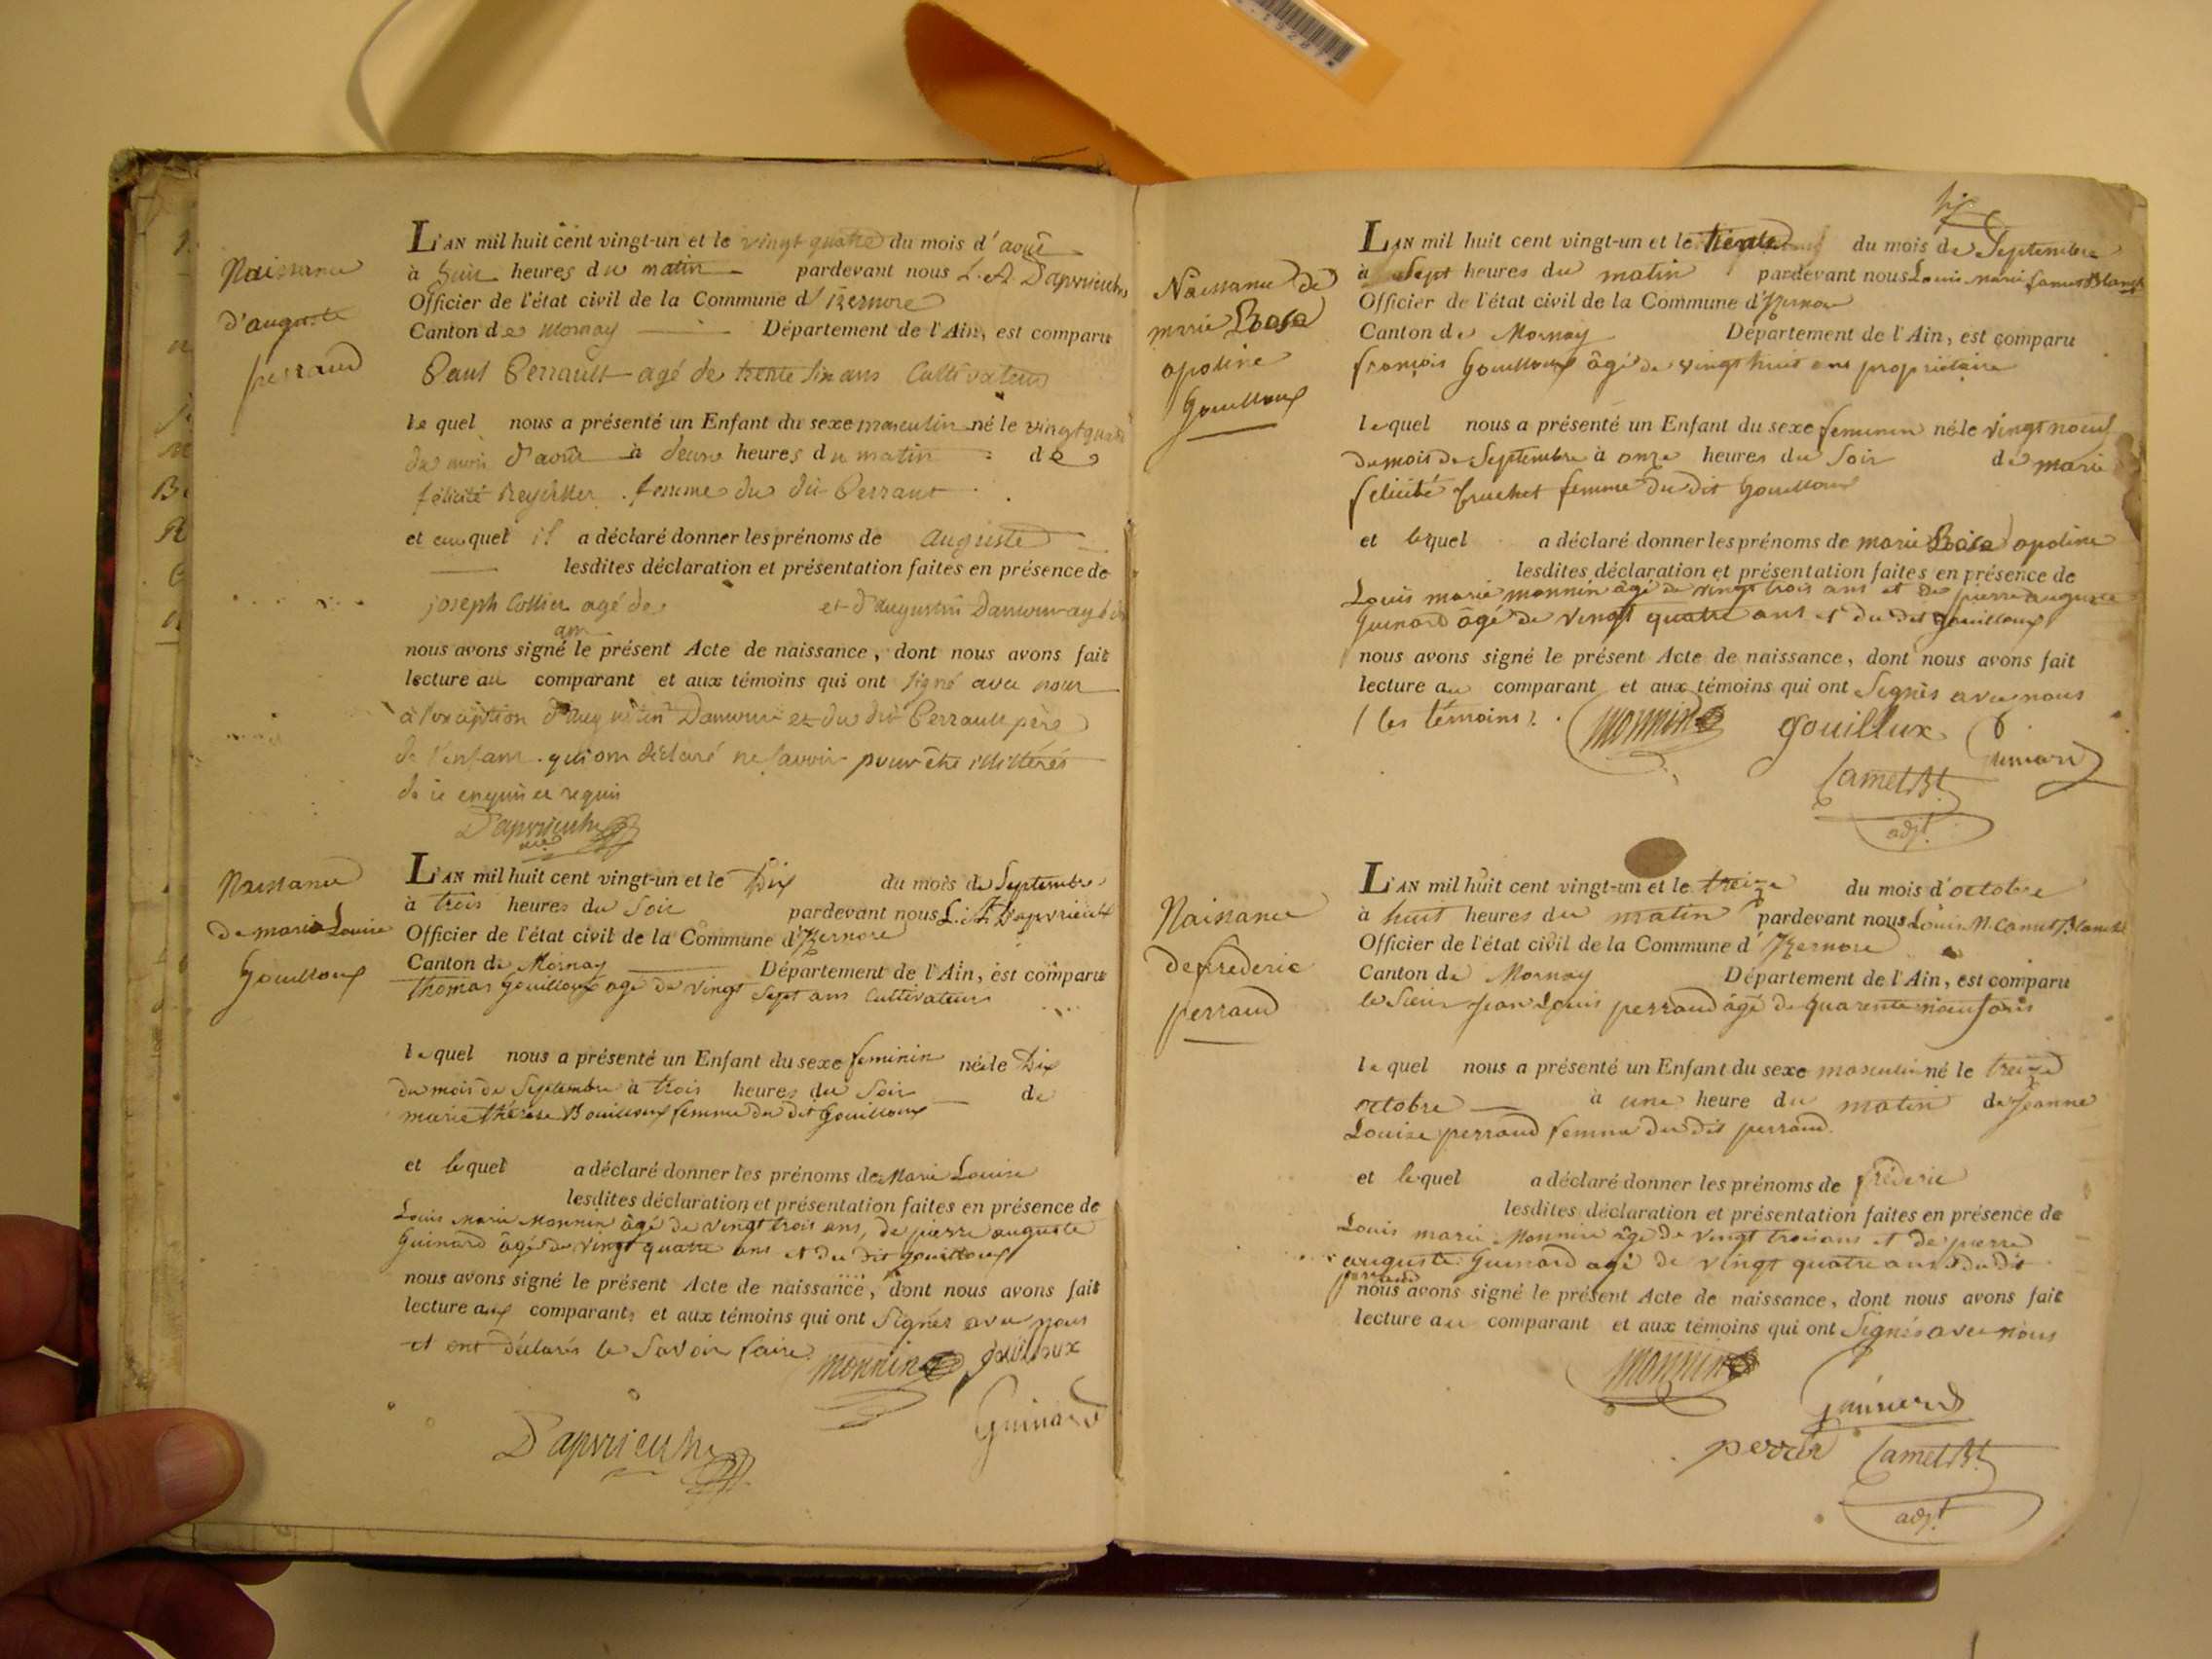 Naissance
d'auguste
perraud
L'AN mil huit cent vingt-un et le vingt quatre du mois d'août
à huit heures du matin pardevant nous L. A. D'apvrieulx
Officier de l'état civil de la Commune d'Izernore
Canton de Mornay Département de l'Ain, est comparu
Paul Perrault agé de trente six ans Cultivateur
lequel nous a présenté un Enfant du sexe masculin né le vingt quatre
du mois d'août à heures du matin de
félicité femme du dit Perraut
et auquel il a déclaré donner les prénoms de auguste
lesdites déclaration et présentation faites en présence de
joseph Collier agé de et d'augustin
ans
nous avons signé le présent Acte de naissance, dont nous avons fait
lecture au comparant et aux témoins qui ont signé avec nous
à l'exception d'augustin et du dit Perrault père
de l'enfant qui ont déclaré ne savoir pour être illitérés
de ce enquis et requis
D'apvrieulx
Naissance
de marie Louise
Gouilloux
L'AN mil huit cent vingt-un et le Dix du mois de Septembre
à trois heures du Soir pardevant nous L. A. D'apvrieulx
Officier de l'état civil de la Commune d'Izernore
Canton de Mornay Département de l'Ain, est comparu
thomas Gouilloux agé de vingt Sept ans Cultivateur
lequel nous a présenté un Enfant du sexe feminin née le Dix
du mois de Septembre à trois heures du Soir de
marie thérèse Bouilloux femme du dit Gouilloux
et lequel a déclaré donner les prénoms de Marie Louise
lesdites déclaration et présentation faites en présence de
Louis Marie Monnin âgé de vingt trois ans, de pierre auguste
Guinard âgé de vingt quatre ans et du dit gouilloux
nous avons signé le présent Acte de naissance, dont nous avons fait
lecture aux comparants et aux témoins qui ont Signés avec nous
et ont déclarés le Savoir faire
Monnin gouilloux
Guinard
D'apvrieulx
Naissance de
marie Rosa
apoline
Gouilloux
L'AN mil huit cent vingt-un et le trente du mois de Septembre
à Sept heures du matin pardevant nous Louis Marie Camet Blanch
Officier de l'état civil de la Commune d'Izernore
Canton de Mornay Département de l'Ain, est comparu
françois Gouilloux âgé de vingt huit ans propriétaire
lequel nous a présenté un Enfant du sexe feminin né le vingt noeuf
du mois de Septembre à onze heures du Soir de marie
felicité femme du dit Gouilloux
et lequel a déclaré donner les prénoms de marie Rosa apoline
lesdites déclaration et présentation faites en présence de
Louis marie monnin âgé de vingt trois ans et de pierre auguste
Guinard âgé de vingt quatre ans et du dit gouilloux
nous avons signé le présent Acte de naissance, dont nous avons fait
lecture au comparant et aux témoins qui ont Signés avec nous
(les témoins). Monnin gouillux
Guinard
Camet Bt.
adjt.
Naissance
de frederic
perraud
L'AN mil huit cent vingt-un et le treize du mois d'octobre
à huit heures du matin pardevant nous Louis M. Camet Blanchet
Officier de l'état civil de la Commune d'Izernore
Canton de Mornay Département de l'Ain, est comparu
le Sieur Jean Louis perraud âgé de quarente noeuf ans
lequel nous a présenté un Enfant du sexe masculin né le treize
octobre à une heure du matin de Jeanne
Louise perraud femme du dit perraud
et lequel a déclaré donner les prénoms de fréderic
lesdites déclaration et présentation faites en présence de
Louis marie Monnin âgé de vingt trois ans et de pierre
auguste Guinard agé de vingt quatre ans et du dit
perraud
nous avons signé le présent Acte de naissance, dont nous avons fait
lecture au comparant et aux témoins qui ont Signés avec nous
Monnin
Guinard
Camet Bt.
adjt.